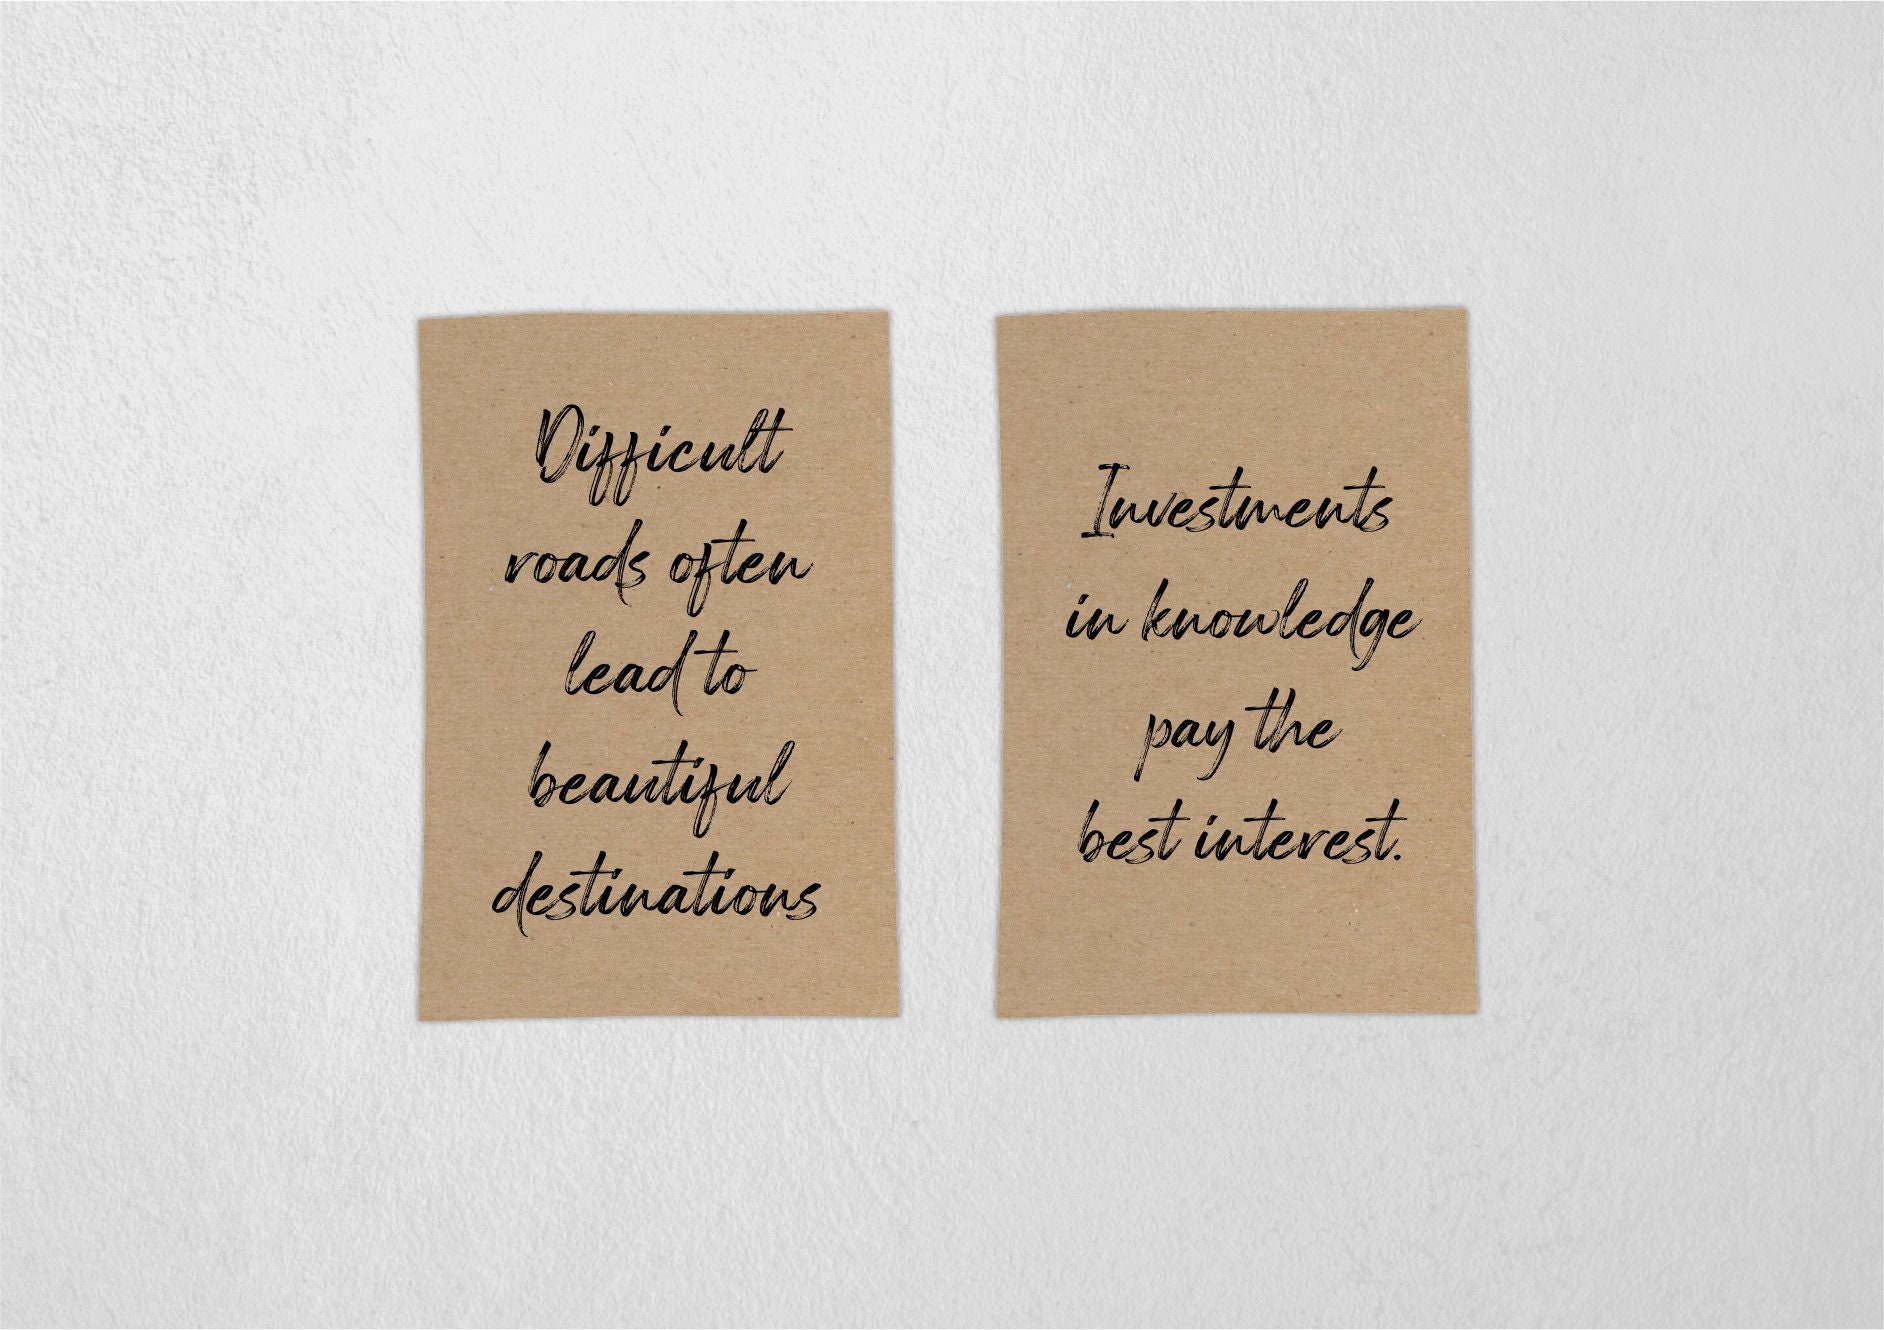 Difficult
roads often
lead to
beautiful
destinations
Investments
in knowledge
pay the
best interest.